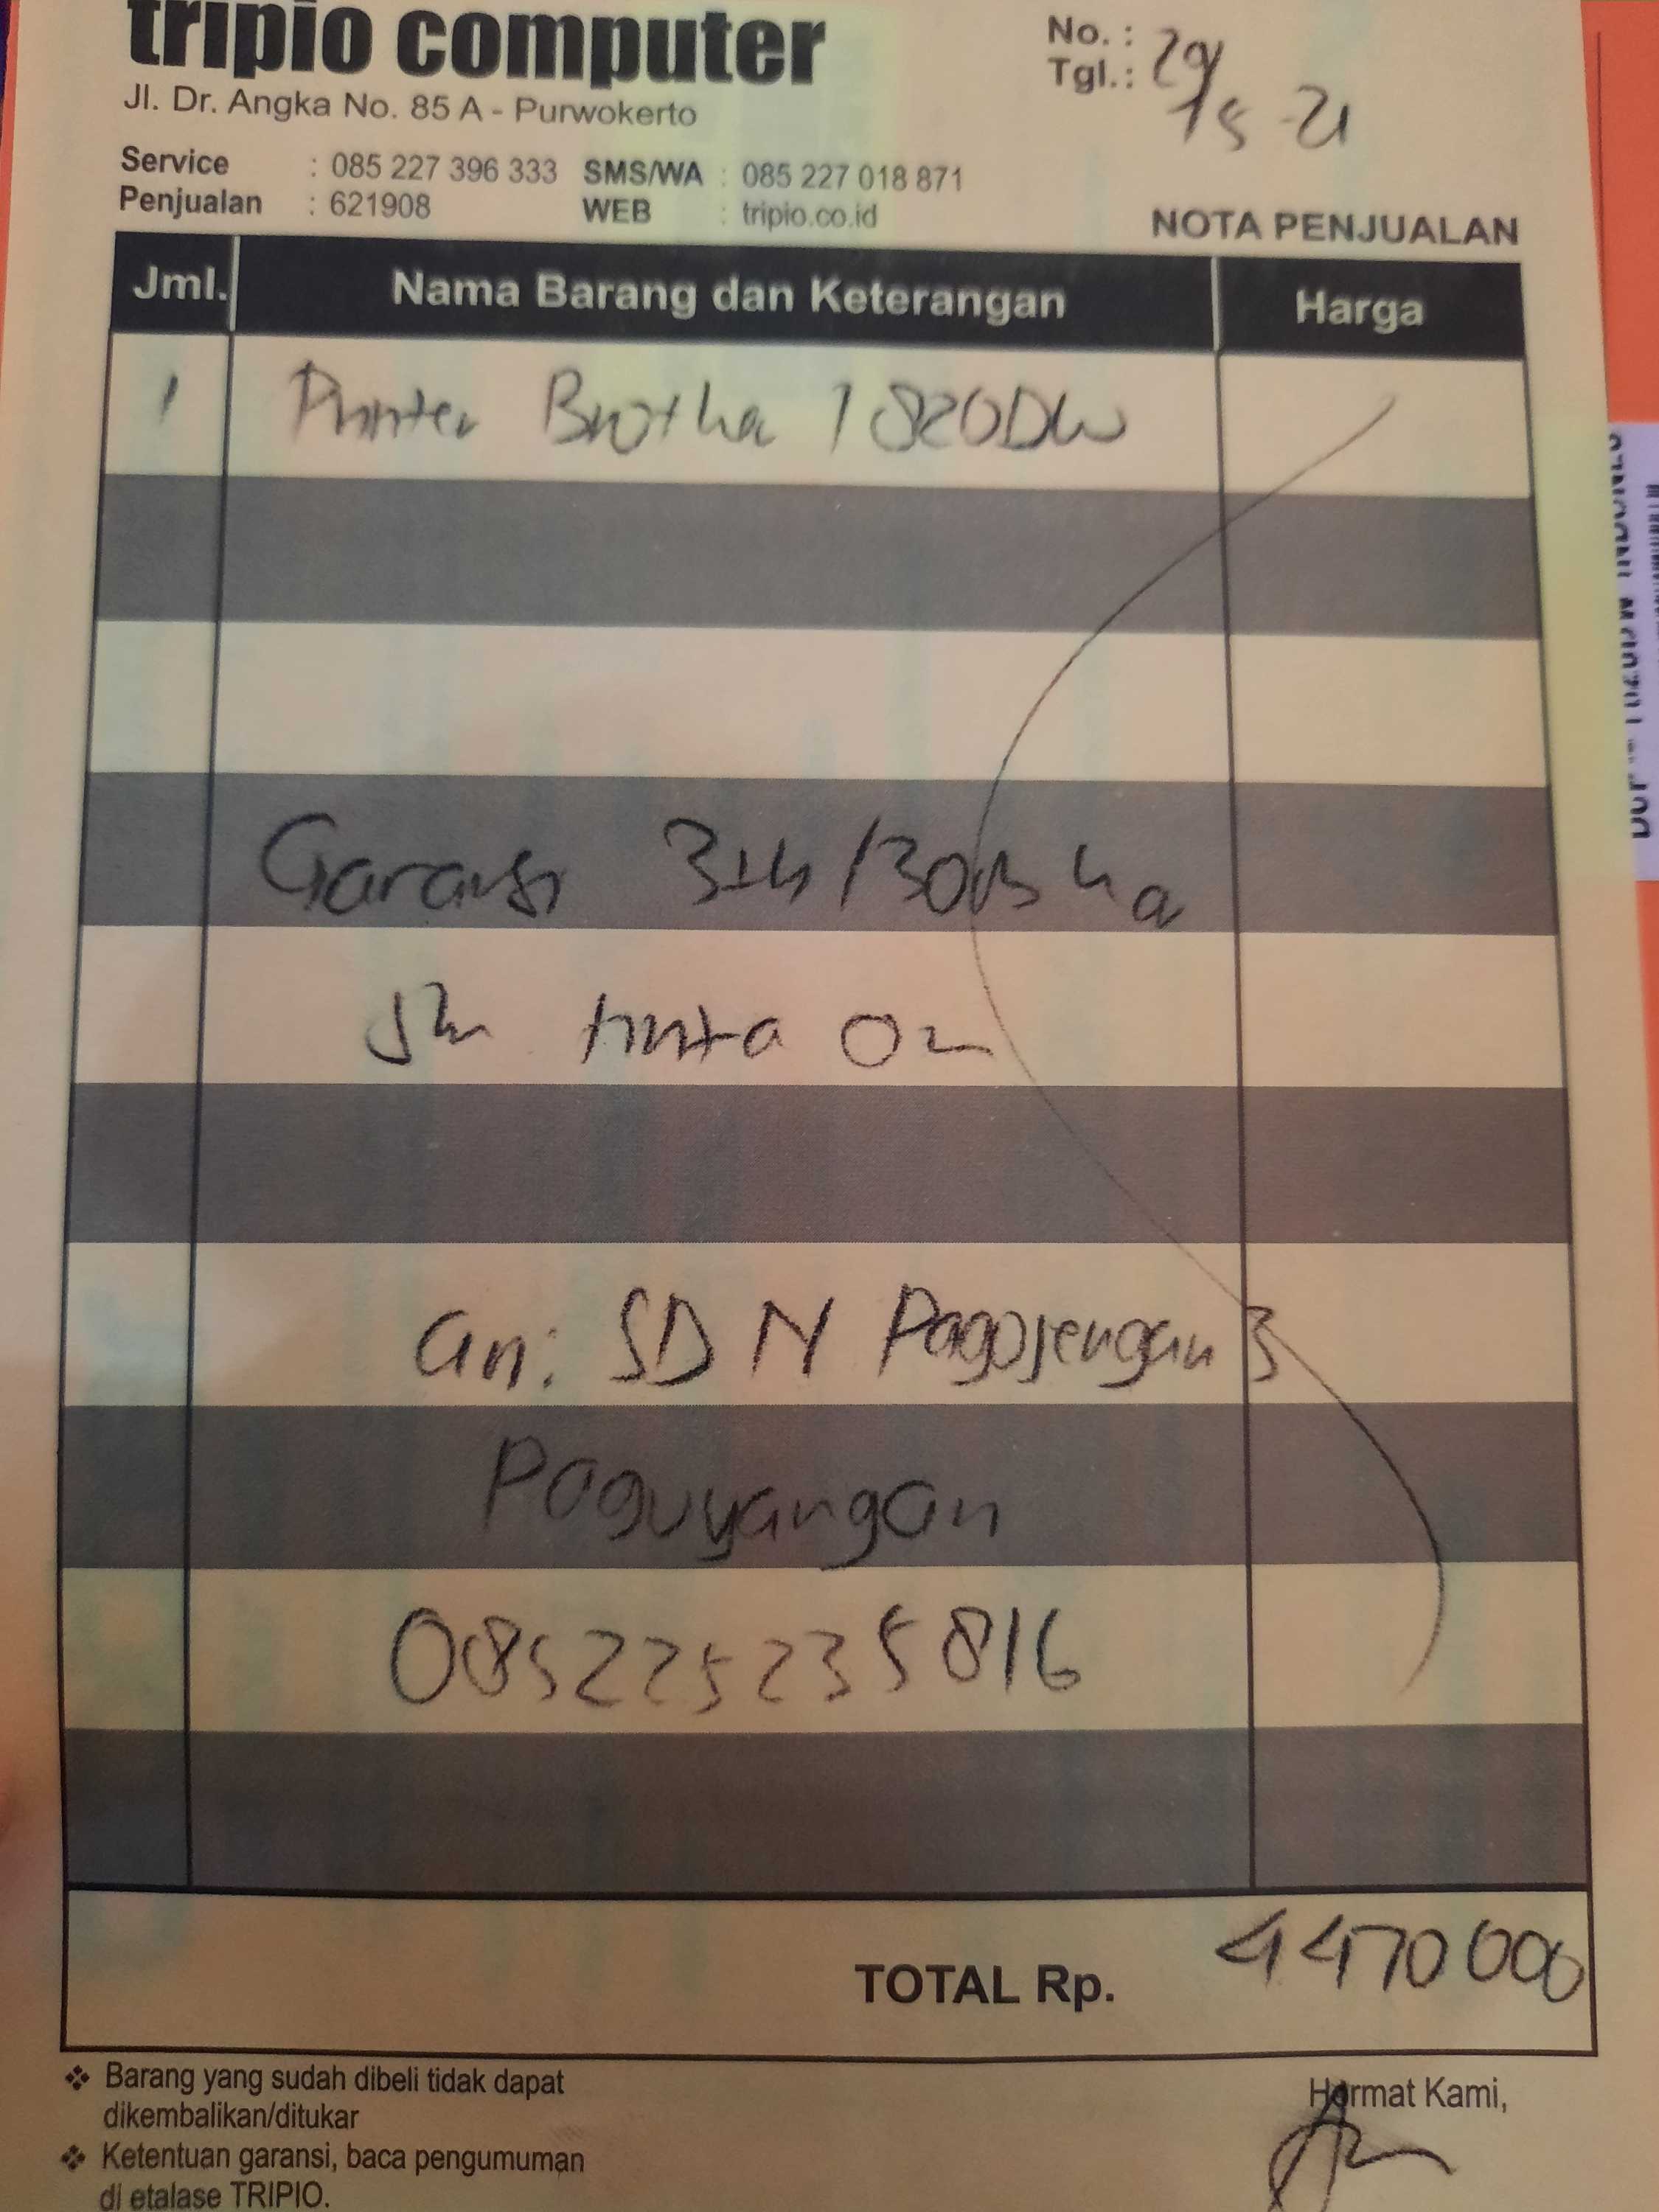 tripio computer
Jl. Dr. Angka No. 85 A - Purwokerto
No. :
Tgl. : 29/5-21
Service : 085 227 396 333 SMS/WA : 085 227 018 871
Penjualan : 621908 WEB : tripio.co.id
NOTA PENJUALAN
Jml. Nama Barang dan Keterangan Harga
1 Printer Brotha 1820DW
Garansi 3th/30
tinta
an: SD N Pagojengan 3
Paguyangan
085225235816
TOTAL Rp. 4470000
❖ Barang yang sudah dibeli tidak dapat
dikembalikan/ditukar
❖ Ketentuan garansi, baca pengumuman
di etalase TRIPIO.
Hormat Kami,